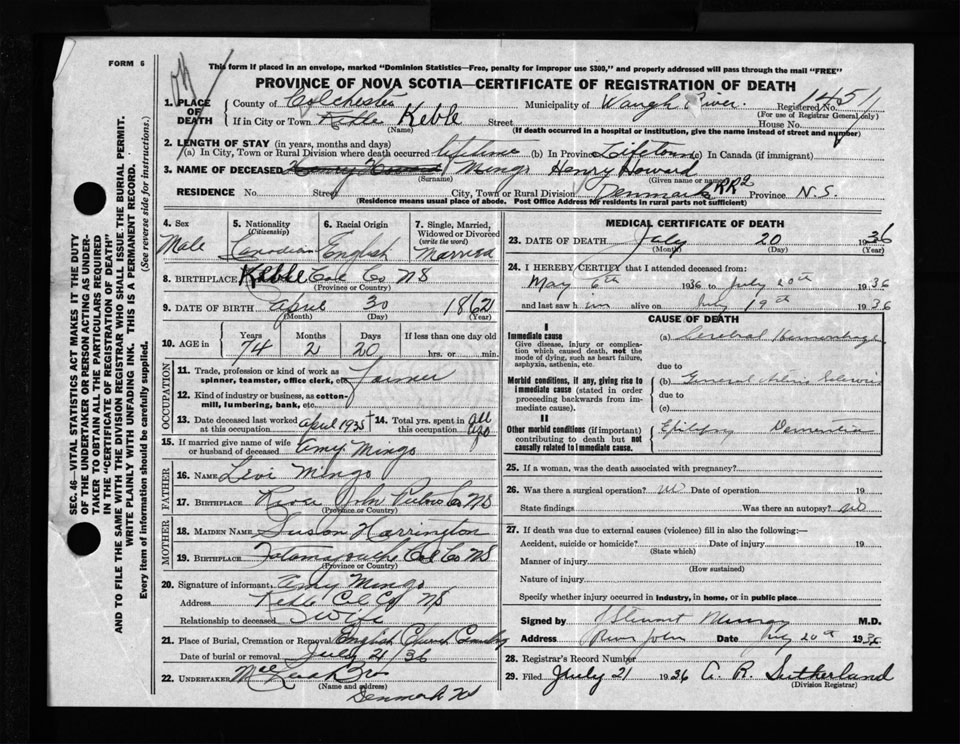 FORM 6
This form if placed in an envelope, marked "Dominion Statistics—Free, penalty for improper use $300," and properly addressed will pass through the mail "FREE"
PROVINCE OF NOVA SCOTIA—CERTIFICATE OF REGISTRATION OF DEATH
1. PLACE OF DEATH County of Colchester Municipality of Waugh River Registered No. 1451
(For use of Registrar General only)
If in City or Town Keble Keble Street House No.
(Name) (If death occurred in a hospital or institution, give the name instead of street and number)
2. LENGTH OF STAY (in years, months and days)
(a) In City, Town or Rural Division where death occurred lifetime (b) In Province Lifetime (c) In Canada (if immigrant)
3. NAME OF DECEASED Henry Howard Mingo Henry Howard
(Surname) (Given name or names)
RESIDENCE No. Street City, Town or Rural Division Denmark RR2 Province N.S.
(Residence means usual place of abode. Post Office Address for residents in rural parts not sufficient)
4. Sex Male
5. Nationality (Citizenship) Canadian
6. Racial Origin English
7. Single, Married, Widowed or Divorced (write the word) Married
8. BIRTHPLACE Keble Col Co NS
(Province or Country)
9. DATE OF BIRTH April 30 1862
(Month) (Day) (Year)
10. AGE in Years Months Days If less than one day old
74 2 20 hrs. or min.
OCCUPATION
11. Trade, profession or kind of work as spinner, teamster, office clerk, etc. Farmer
12. Kind of industry or business, as cotton-mill, lumbering, bank, etc.
13. Date deceased last worked at this occupation April 1935
14. Total yrs. spent in this occupation all
15. If married give name of wife or husband of deceased Amy Mingo
FATHER
16. Name Levi Mingo
17. Birthplace River John Pictou Co NS
(Province or Country)
MOTHER
18. Maiden Name Susan Harrington
19. Birthplace Tatamagouche Col Co NS
(Province or Country)
20. Signature of informant Amy Mingo
Address Keble Col Co NS
Relationship to deceased wife
21. Place of Burial, Cremation or Removal English Church Cemetery
Date of burial or removal July 21/36
22. UNDERTAKER Bros
(Name and address)
Denmark NS
MEDICAL CERTIFICATE OF DEATH
23. DATE OF DEATH July 20 1936
(Month) (Day) (Year)
24. I HEREBY CERTIFY that I attended deceased from:
May 6th 1936 to July 20th 1936
and last saw him alive on July 19th 1936
CAUSE OF DEATH
I
Immediate cause
Give disease, injury or complication which caused death, not the mode of dying, such as heart failure, asphyxia, asthenia, etc.
(a) Cerebral Hemorrhage
due to
Morbid conditions, if any, giving rise to immediate cause (stated in order proceeding backwards from immediate cause).
(b) General Sclerosis
due to
(c)
II
Other morbid conditions (if important) contributing to death but not causally related to immediate cause.
Epilepsy Dementia
25. If a woman, was the death associated with pregnancy?
26. Was there a surgical operation? no Date of operation 19
State findings Was there an autopsy? no
27. If death was due to external causes (violence) fill in also the following:—
Accident, suicide or homicide? Date of injury 19
(State which)
Manner of injury
(How sustained)
Nature of injury
Specify whether injury occurred in industry, in home, or in public place
Signed by J Stuart Murray M.D.
Address River John Date July 20th 1936
28. Registrar's Record Number
29. Filed July 21 1936 A. R. Sutherland
(Division Registrar)
SEC. 46—VITAL STATISTICS ACT MAKES IT THE DUTY
OF THE UNDERTAKER OR PERSON ACTING AS UNDER-
TAKER TO OBTAIN ALL THE PARTICULARS REQUIRED
IN THE "CERTIFICATE OF REGISTRATION OF DEATH"
AND TO FILE THE SAME WITH THE DIVISION REGISTRAR WHO SHALL ISSUE THE BURIAL PERMIT.
WRITE PLAINLY WITH UNFADING INK. THIS IS A PERMANENT RECORD.
Every item of information should be carefully supplied. (See reverse side for instructions.)